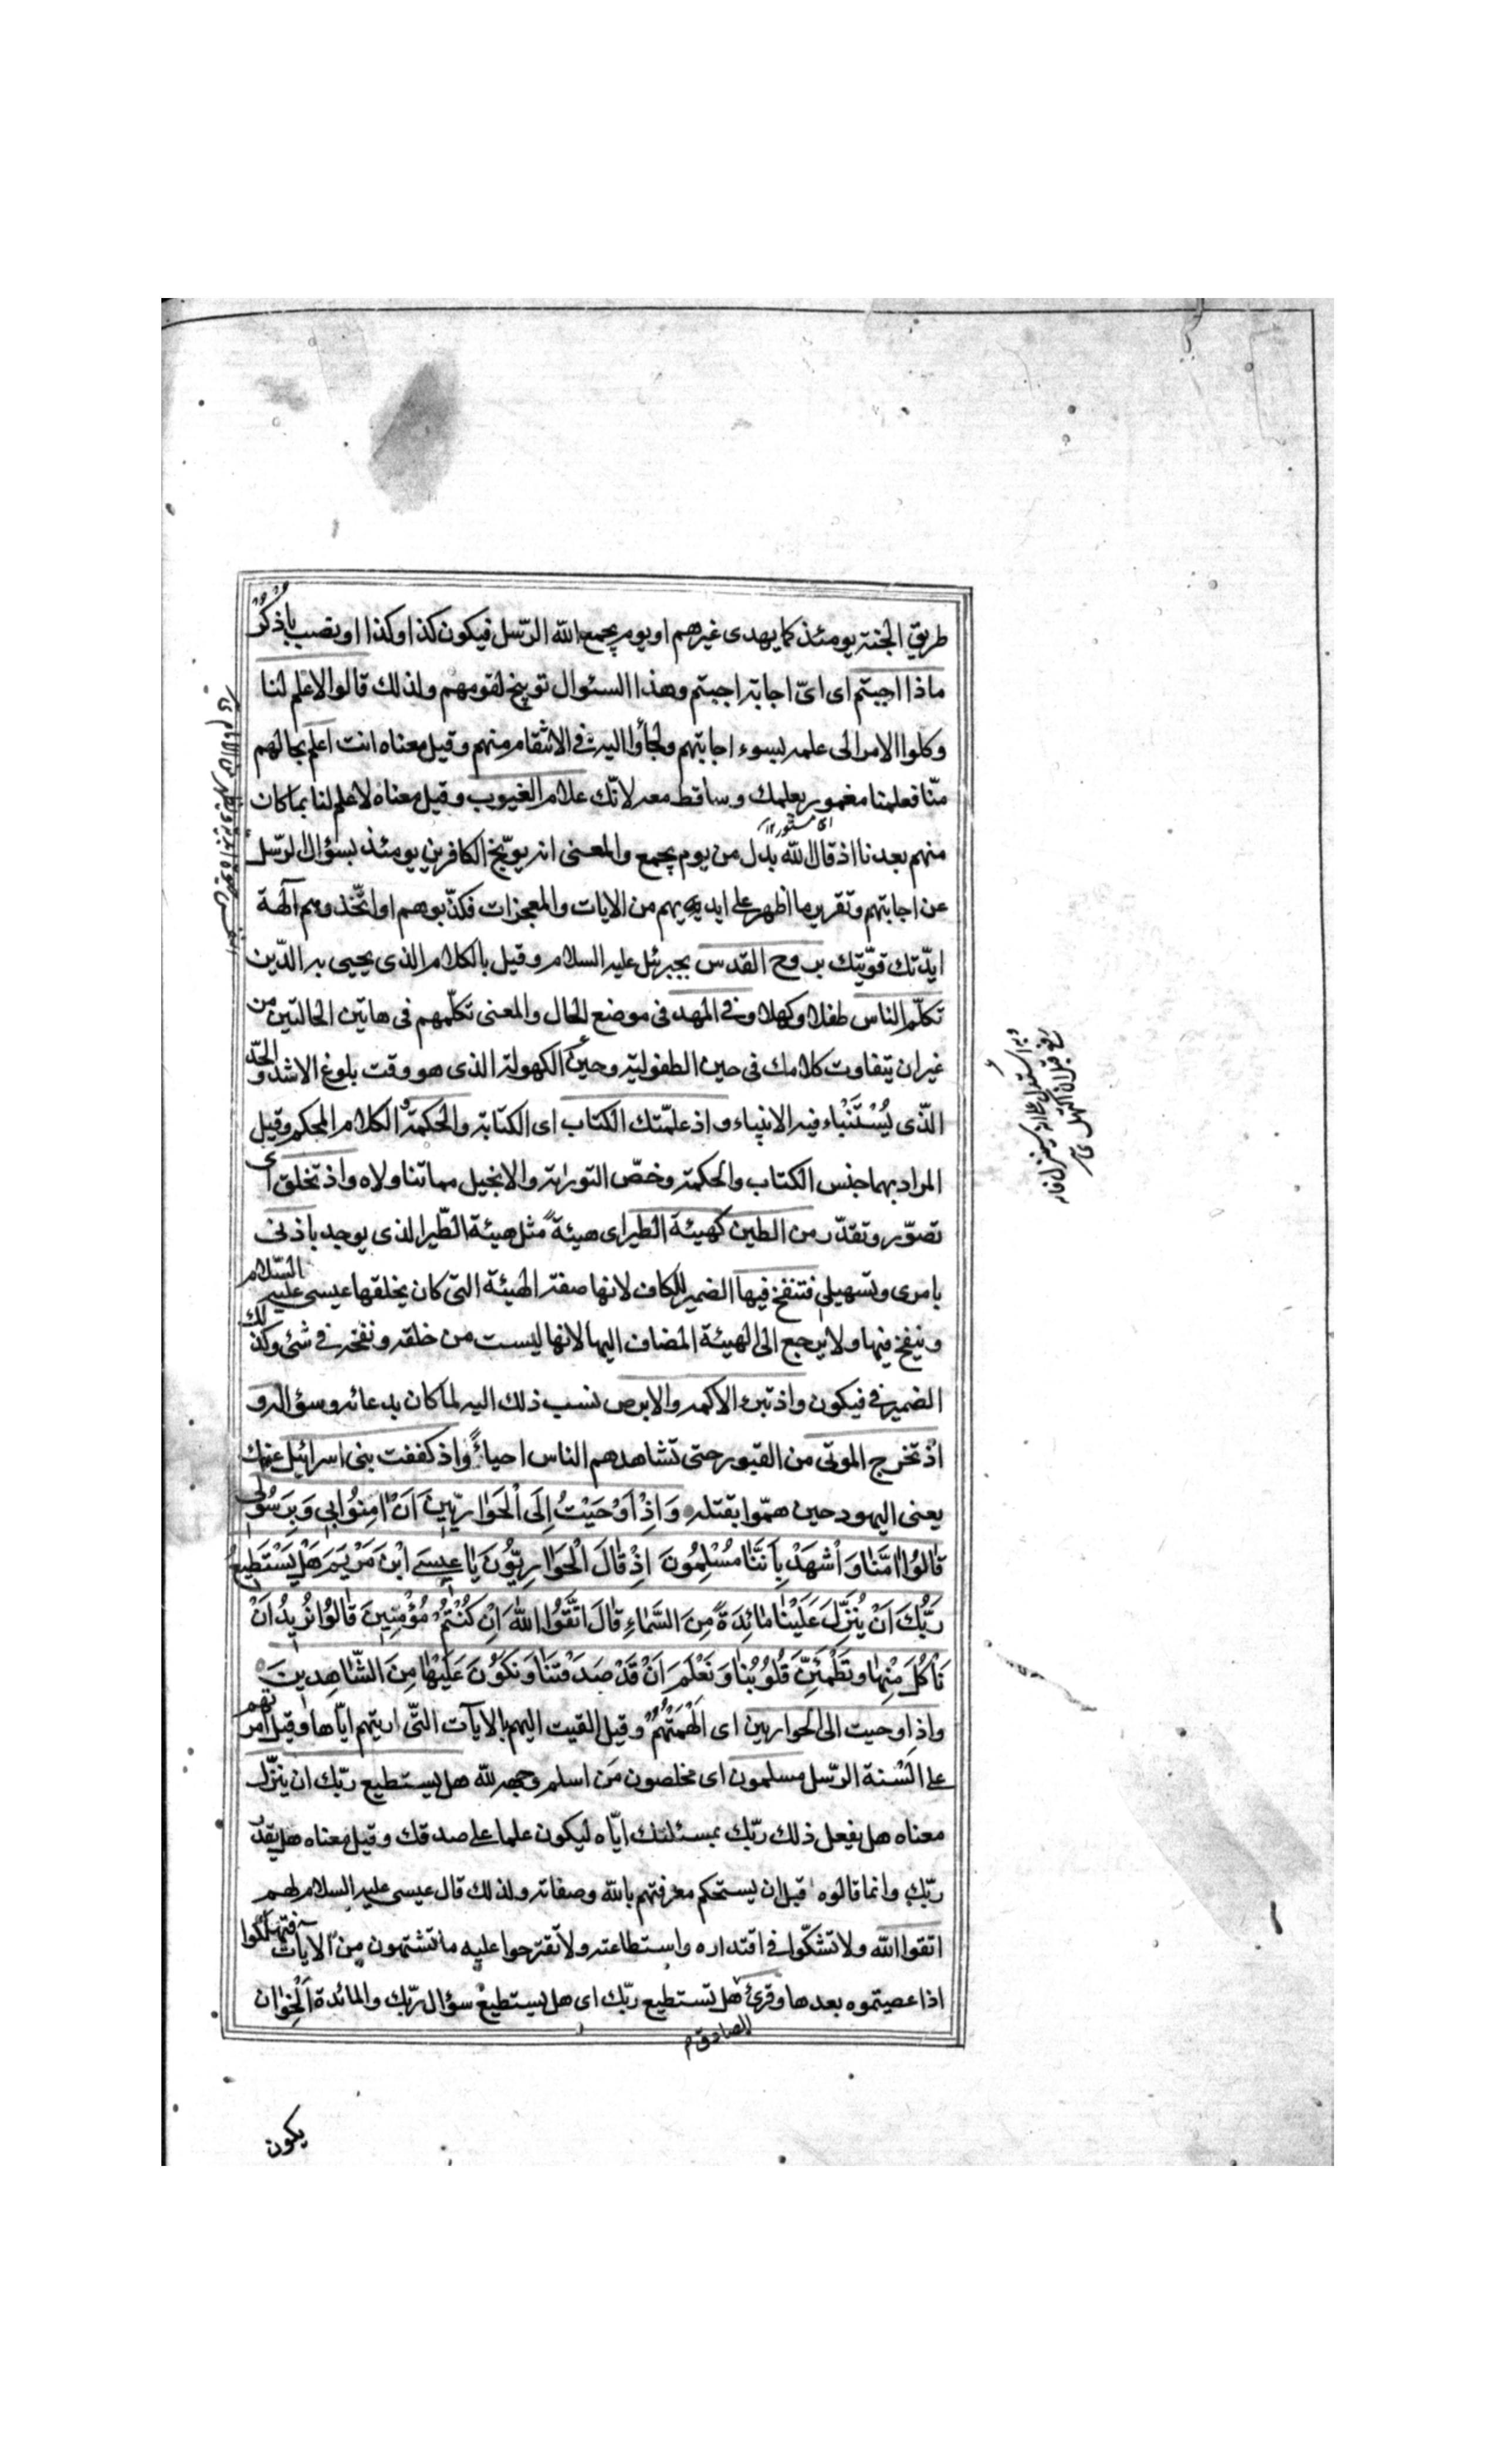 طريق الجنة يومئذ كما يهدى غيرهم او يوم يجمع الله الرّسل فيكون كذا وكذا او نصب باذكر
ماذا اجبتم اى اىّ اجابة اجبتم وهذا السئوال توبيخ لقومهم ولذلك قالوا لا علم لنا
وكلوا الامر الى علمه بسوء اجابتهم ولجأوا اليه فى الانتقام منهم وقيل معناه انت اعلم بحالهم
منّا فعلمنا مغمور بعلمك وساقط معه لانّك علام الغيوب وقيل معناه لا علم لنا بما كان
اى مستور ١٢
منهم بعدنا اذ قال الله بدل من يوم يجمع والمعنى انه يوبّخ الكافرين يومئذ بسؤال الرّسل
عن اجابتهم وتقرير ما اظهر على ايديهم من الايات والمعجزات فكذّبوهم او اتّخذوهم آلهة
ايّدتك قوّيتك بروح القدس بجبرئل عليه السلام وقيل بالكلام الذى يحيى به الدّين
تكلّم الناس طفلا وكهلا وفى المهد فى موضع الحال والمعنى تكلّمهم فى هاتين الحالتين من
غير ان يتفاوت كلامك فى حين الطفولية وحين الكهولة الذى هو وقت بلوغ الاشد والحدّ
الذّى يُسْتَنْباء فيه الانبياء واذ علمّتك الكتاب اى الكتابة والحكمة الكلام المحكم وقيل
المراد بهما جنس الكتاب والحكمة وخصّ التورٰية والانجيل مما تناولاه واذ تخلق اى
تصوّر وتقدّر من الطين كهيئة الطير اى هيئةً مثل هيئة الطّير الذى يوجد باذنى
بامرى وتسهيلى فتنفخ فيها الضمير للكاف لانها صفة الهيئة التى كان يخلقها عيسى عليه السّلام
وينفخ فيها ولا يرجع الى الهيئة المضاف اليها لانها ليست من خلقه ونفخه فى شئ وكذلك
الضمير فى فيكون واذ تبرء الاكمه والابرص نسب ذلك اليه لما كان بدعائه وسؤاله و
اذ تخرج الموتى من القبور حتى تشاهدهم الناس احياءً واذ كففت بنى اسرائيل عنك
يعنى اليهود حين همّوا بقتله وَاِذْ اَوْحَيْتُ اِلَى الْحَوٰارِيّٖنَ اَنْ اٰمِنُوا بٖى وَبِرَسُولٖى
قٰالُوا اٰمَنّٰا وَاْشْهَدْ بِاَنَّنٰا مُسْلِمُونَ اِذْ قٰالَ الْحَوٰارِيُّونَ يٰا عٖيسَى ابْنَ مَرْيَمَ هَلْ يَسْتَطٖيعُ
رَبُّكَ اَنْ يُنَزِّلَ عَلَيْنٰا مٰائِدَةً مِنَ السَّمٰاءِ قٰالَ اتَّقُوا اللّٰهَ اِنْ كُنْتُمْ مُؤْمِنٖينَ قٰالُوا نُرٖيدُ اَنْ
نَأْكُلَ مِنْهٰا وَتَطْمَئِنَّ قُلُوبُنٰا وَنَعْلَمَ اَنْ قَدْ صَدَقْتَنٰا وَنَكُونَ عَلَيْهٰا مِنَ الشّٰاهِدٖينَ
واذ اوحيت الى الحواريين اى اَلْهَمْتُهُمْ وقيل القيت اليهم بالايآت التّى اريتهم ايّاها وقيل امرتهم
على السْنة الرّسل مسلمون اى مخلصون مَن اسلم وجهه لله هل يستطيع ربّك ان ينزّل
معناه هل يفعل ذلك ربّك بمسئلتك ايّاه ليكون علما على صدقك وقيل معناه هل يقدر
ربّك وانما قالوه قبل ان يستحكم معرفتهم بالله وصفاته ولذلك قال عيسى عليه السلام لهم
اتقوا الله ولا تشكّوا فى اقتداره واستطاعته ولا تقترحوا عليه ما تشتهون من الآيات فتهلكوا
اذا عصيتموه بعدها وقرئ هل تستطيع ربّك اى هل يستطيع سؤال ربّك والمائدة الْخِوٰان
الصادق
يكون